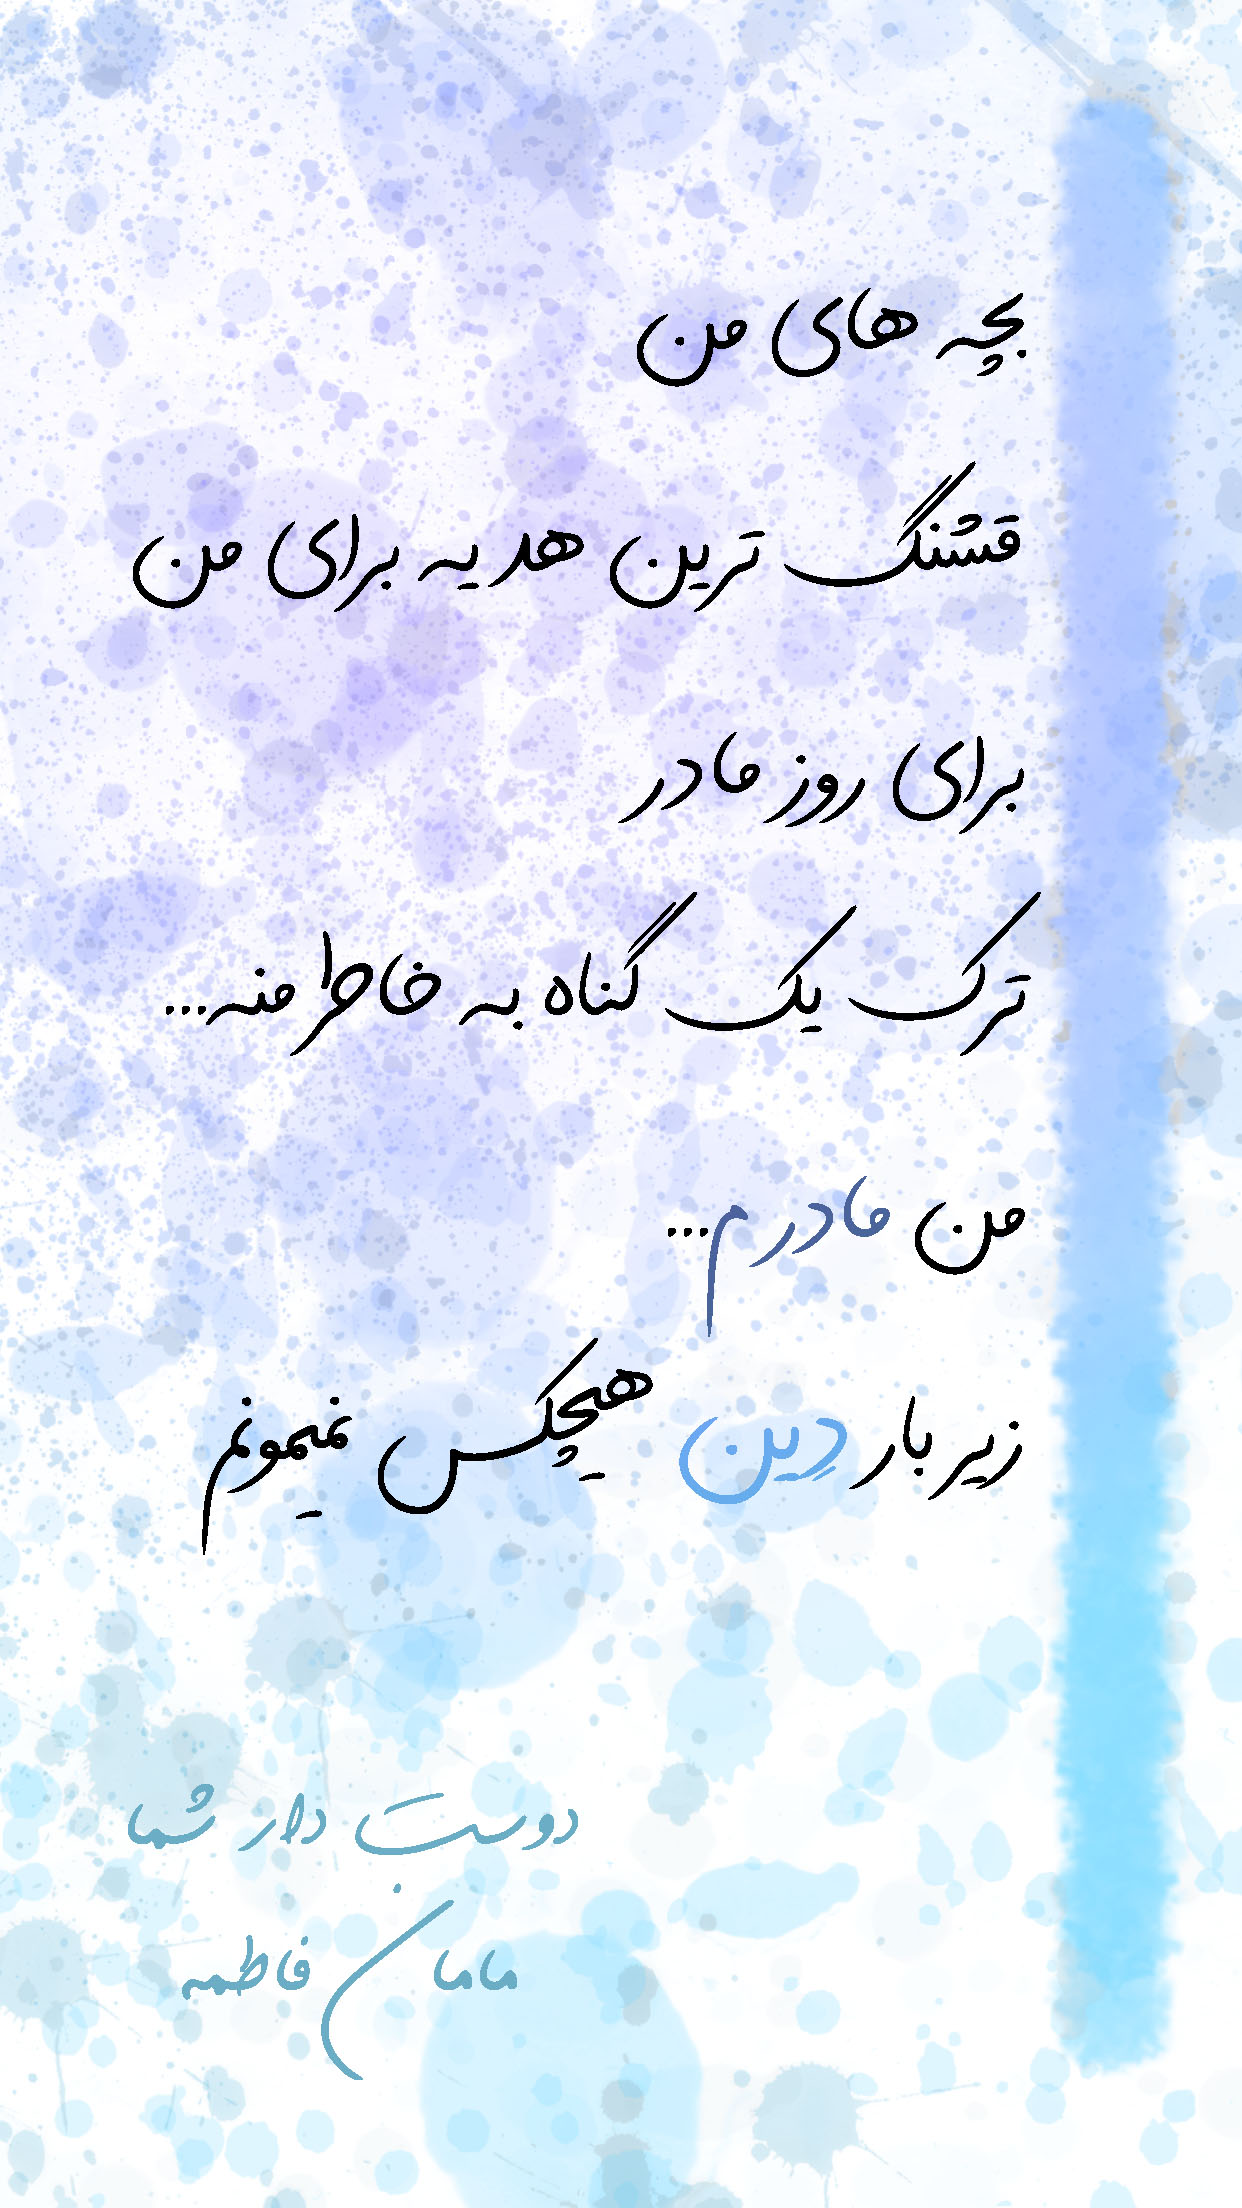 بچه های من
قشنگ ترین هدیه برای من
برای روز مادر
ترک یک گناه به خاطر منه...
من مادرم...
زیر بار دِین هیچکس نمیمونم
دوست دار شما
مامان فاطمه